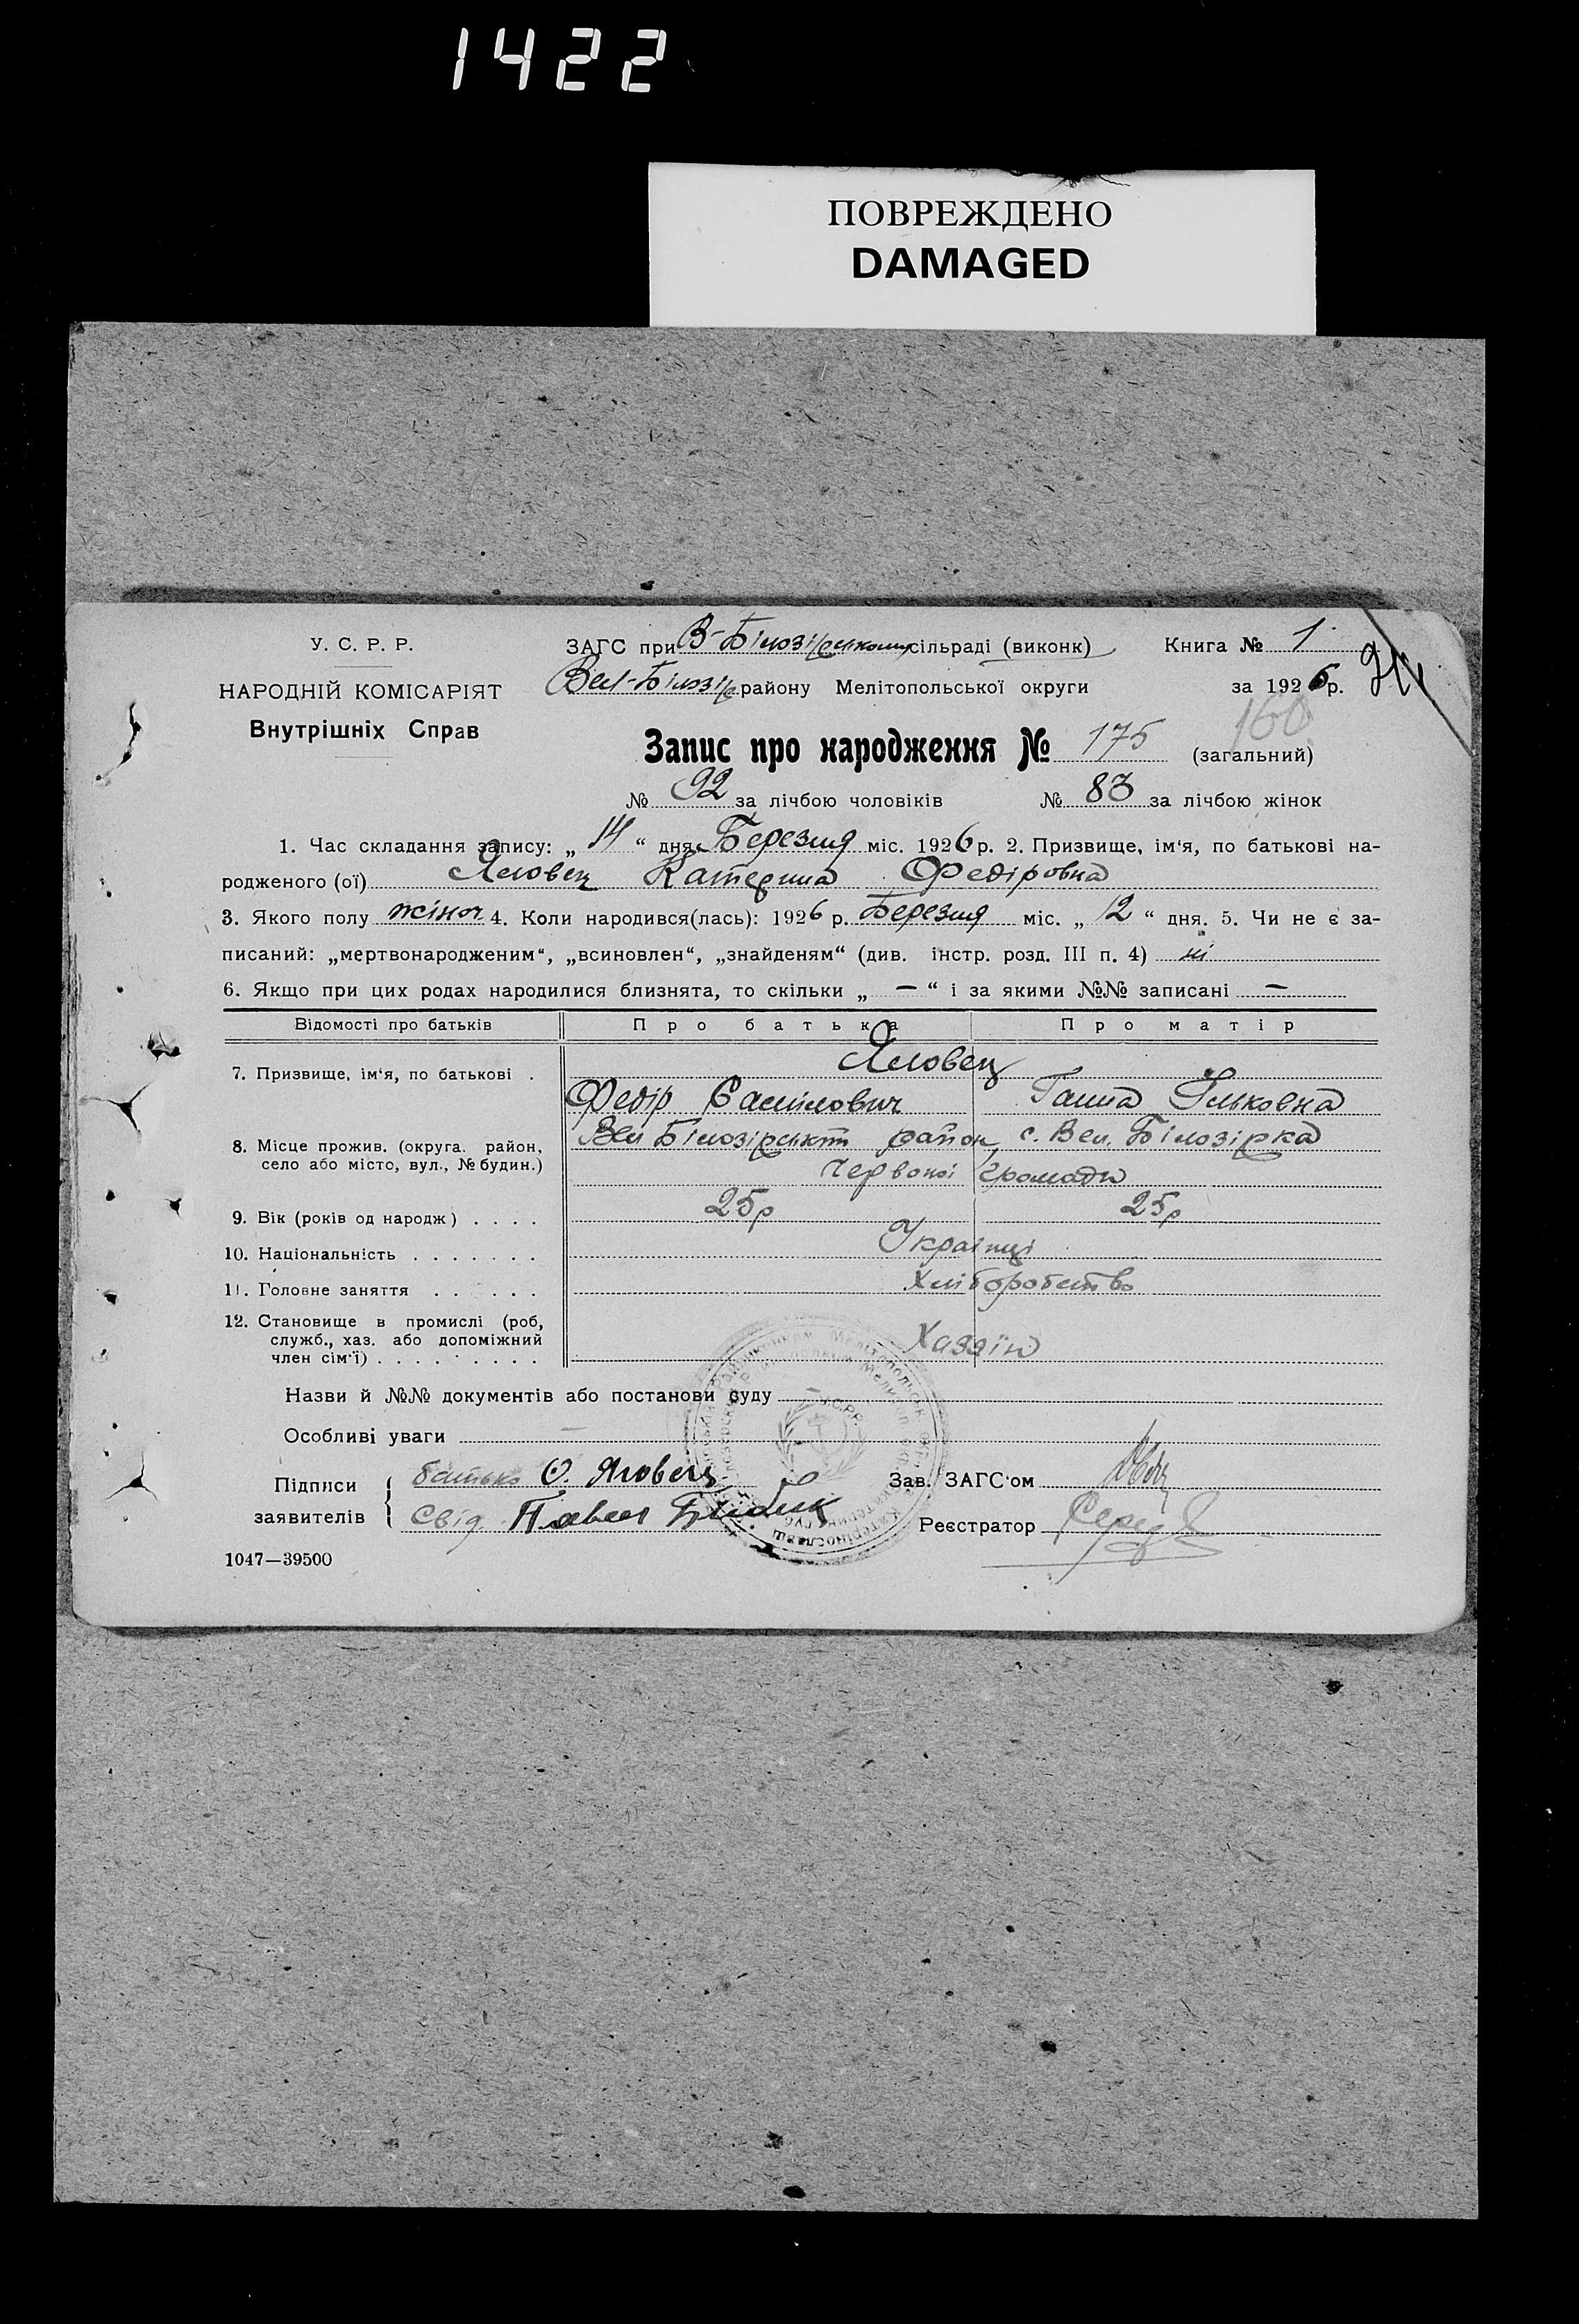 1422
ПОВРЕЖДЕНО
DAMAGED
У. С. Р. Р.
НАРОДНІЙ КОМІСАРІЯТ
Внутрішніх Справ
ЗАГС при В-Білозірському сільраді (виконк)
Вел-Білозір району Мелітопольської округи
Книга № 1
за 1926 р.
160
Запис про народження № 175 (загальний)
№ 92 за лічбою чоловіків № 83 за лічбою жінок
1. Час складання запису: „ 14 “ дня Березня міс. 1926 р. 2. Призвище, ім‘я, по батькові на-
родженого (ої) Яловец Катерина Федіровна
3. Якого полу жіноч 4. Коли народився(лась): 1926 р. Березня міс. „ 12 “ дня. 5. Чи не є за-
писаний: „мертвонародженим“, „всиновлен“, „знайденям“ (див. інстр. розд. III п. 4) ні
6. Якщо при цих родах народилися близнята, то скільки „ — “ і за якими №№ записані —
Відомості про батьків Про батька Про матір
7. Призвище, ім‘я, по батькові . Яловец
Федір Самілович Ганна Ільковна
8. Місце прожив. (округа. район, село або місто, вул., № будин.) Вел Білозірський район, с. Вел. Білозірка
Червоної громади
9. Вік (років од народж) . . . . 25р 25р
10. Національність . . . . . . . Українці
11. Головне заняття . . . . . . Хліборобство
12. Становище в промислі (роб,
служб., хаз. або допоміжний
член сім‘ї) . . . . . . . . . Хазяїн
Назви й №№ документів або постанови суду —
Особливі уваги —
Підписи
заявителів
батько Ф. Яловец
Свід. Павел Бибик
Зав. ЗАГС‘ом
Реєстратор
1047—39500